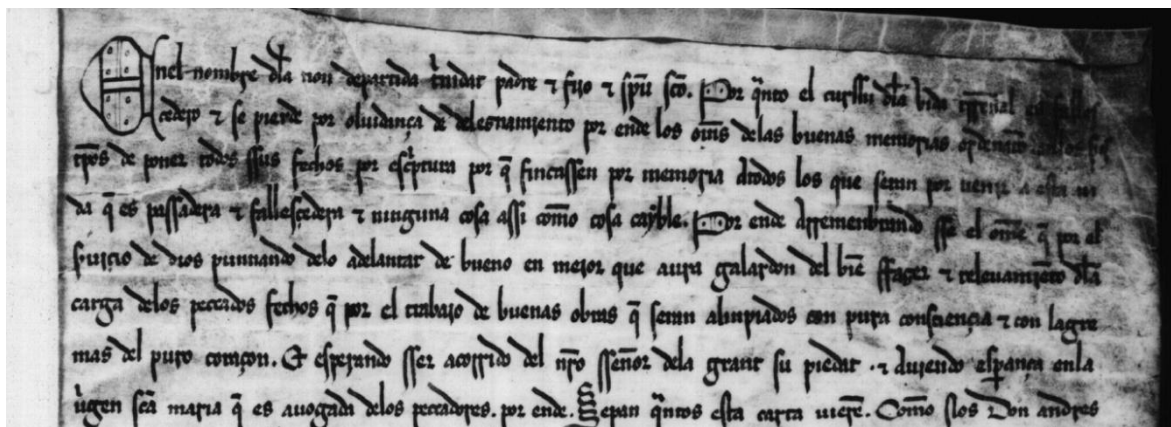 Enel nombre dla non departida t'nidat padre τ fijo τ sp̅u sc̅o. Por q̅nto el curssu dla vida t̅rrenal es falles
cedero τ se pierde por oluidança τ delesnamiento por ende los om̅s delas buenas memorias ordenaron
t̅pos de poner todos ssus fechos por esc'ptura por q̅ fincassen por memoria dtodos los que seran por uenir a esta ui
da q̅ es passadera τ fallesçedera τ ninguna cosa assi com̅o cosa cayble. Por ende arremenbrando sse el om̅e q̅ por el
s̅uiçio de dios punnando delo adelantar de bueno en mejor que aura galardon del bie̅ ffazer τ releuamie̅to dla
carga delos peccados fechos q̅ por el trabajo de buenas obras q̅ seran alinpiados con pura consciençia τ con lagre
mas del puro coraçon. Et esperando sser acorrido del n̅ro ssen̅or dela grant su piedat. τ auiendo esp̲ança enla
u'gen sc̅a maria q̅ es auogada delos peccadores. por ende. Sepan q̅ntos esta carta uiere̅. Com̅o nos Don andres